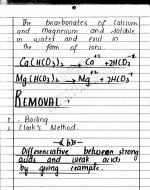 The bicarbonates of Calcium
and magnesium and soluble
in water and exist in
the form of ions.
Ca(HCO₃)₂ → Ca⁺² + 2HCO₃⁻
Mg(HCO₃)₂ → Mg⁺² + 2HCO₃⁻
REMOVAL:
1. Boiling
2. Clark's Method.
(b)
Differenciative between strong
acids and weak acids
by giving example.